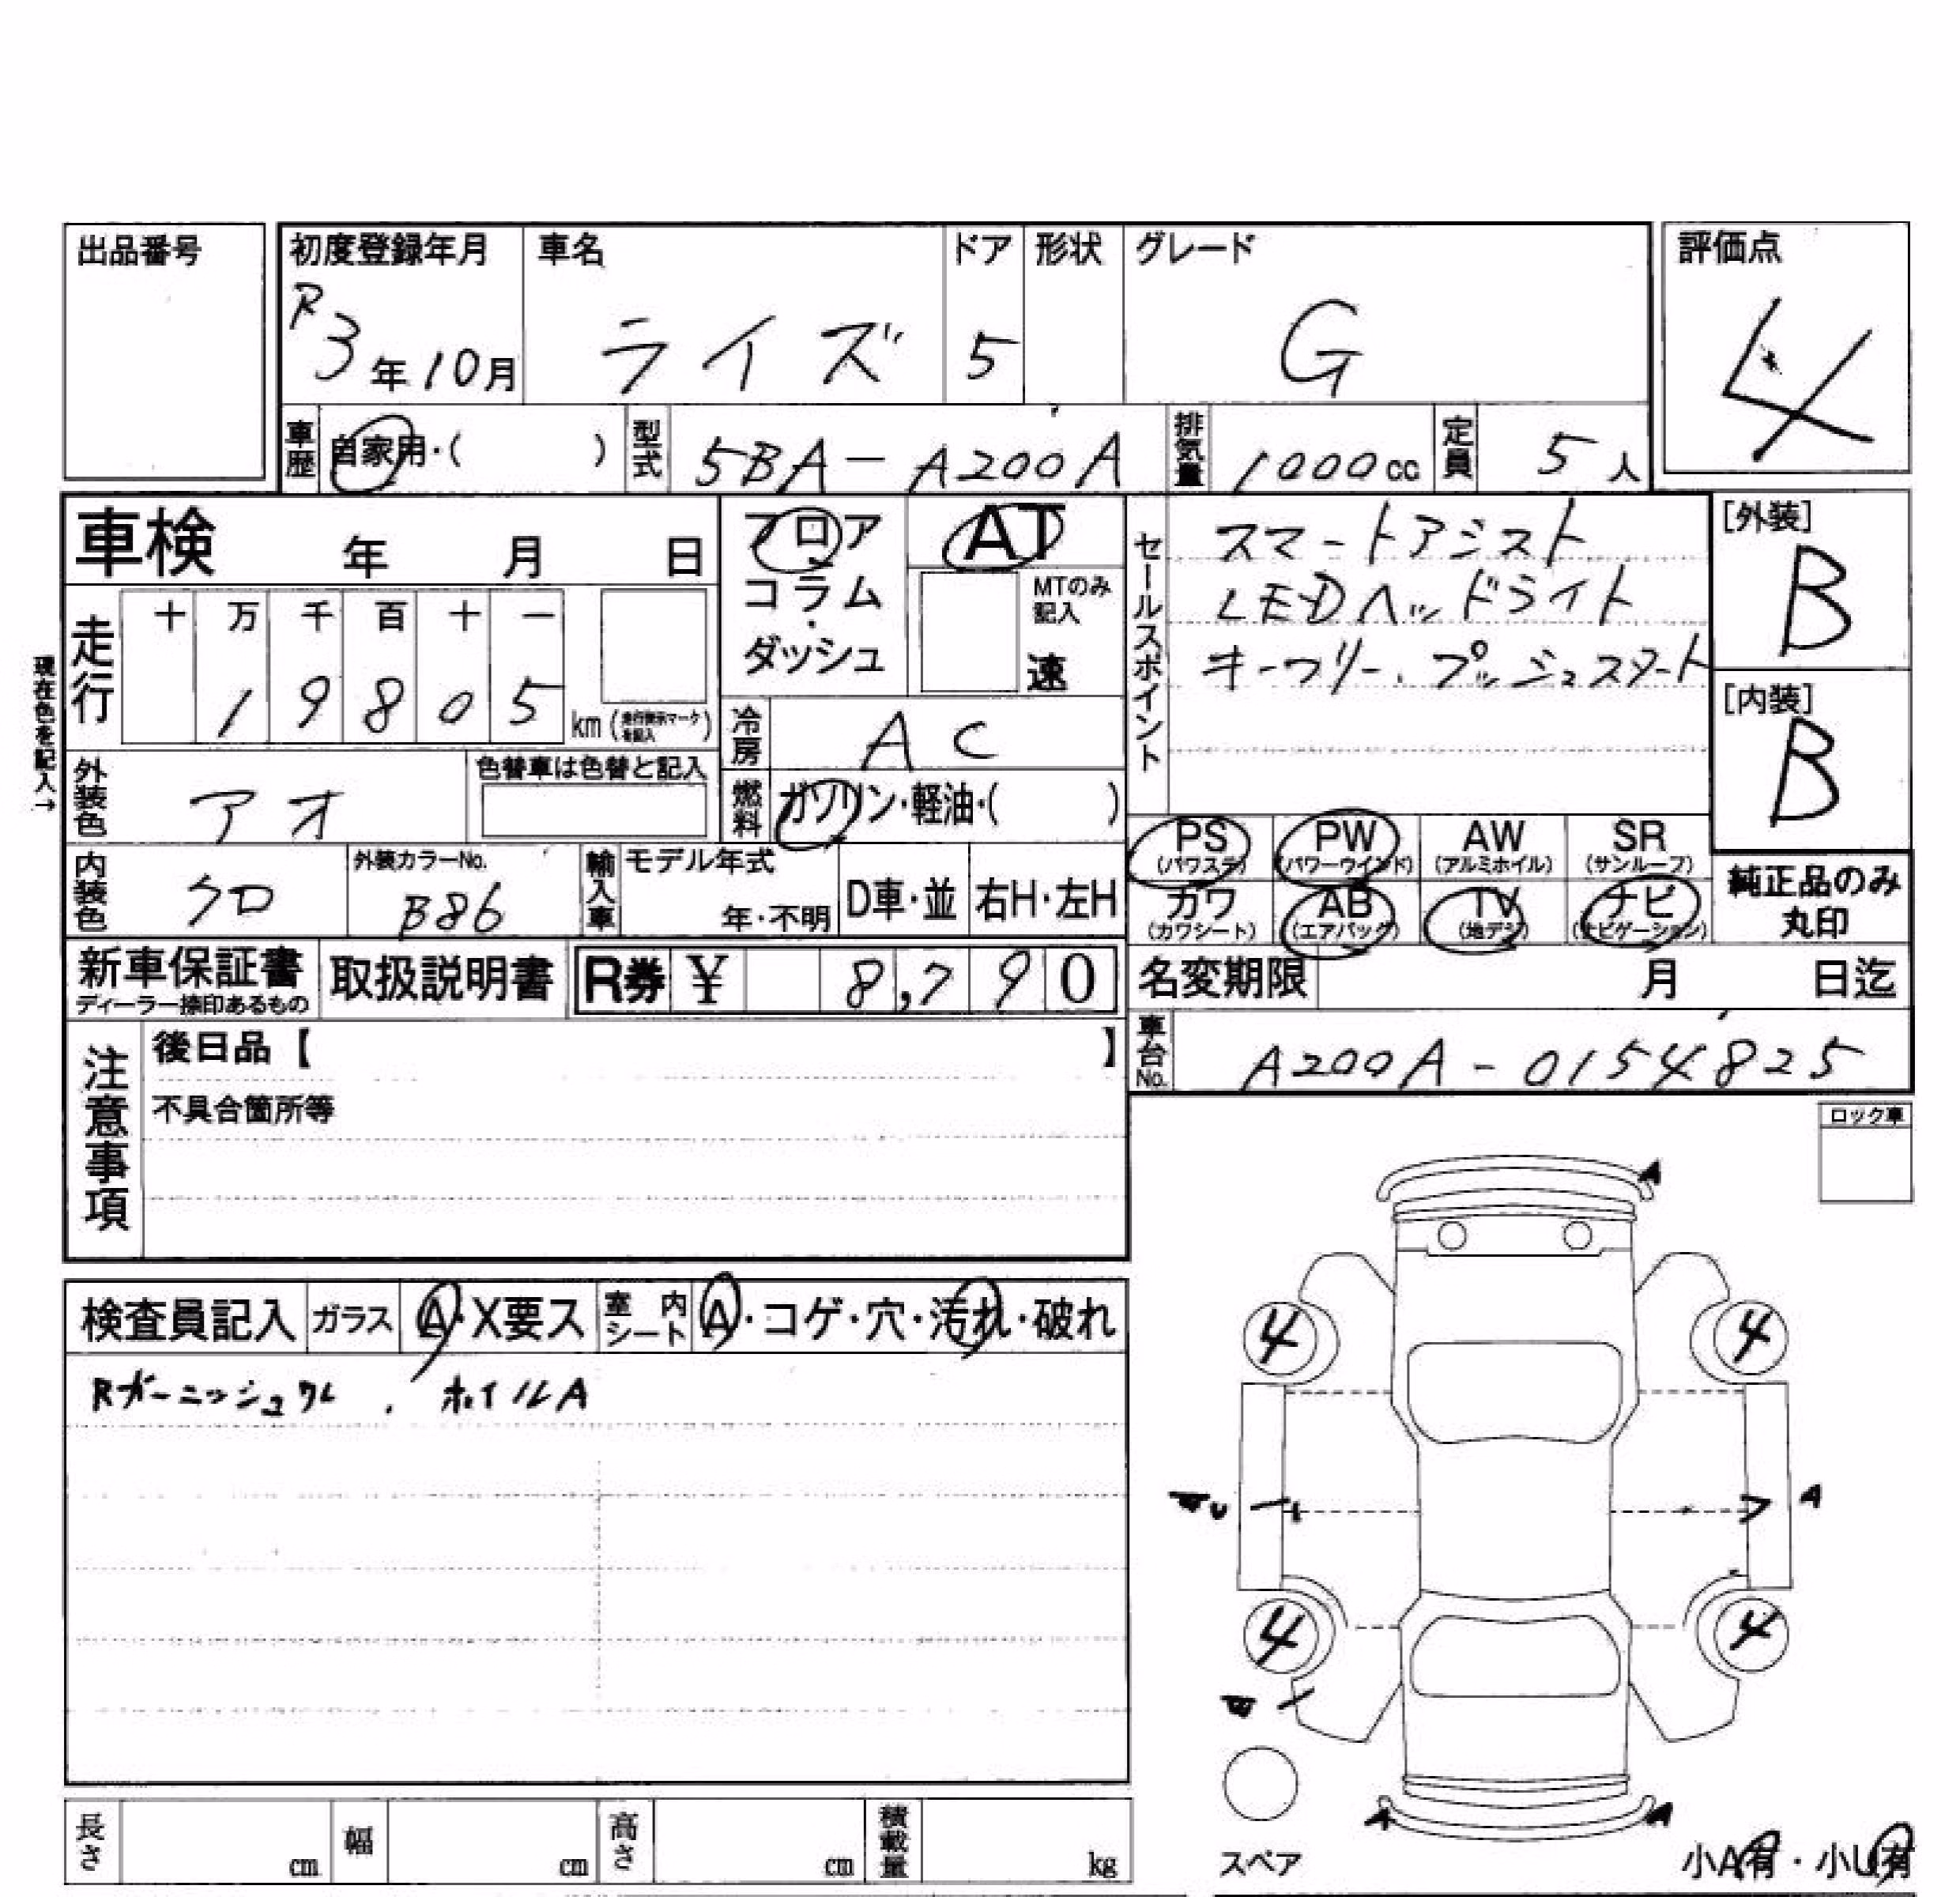 出品番号
初度登録年月
R3年10月
車名
ライズ
ドア
5
形状
グレード
G
評価点
4
車歴 自家用・( )
型式 5BA-A200A
排気量 1000cc
定員 5人
車検 年 月 日
フロア・コラム・ダッシュ
AT
MTのみ記入
速
セールスポイント
スマートアシスト
LEDヘッドライト
キーフリー、プッシュスタート
[外装]
B
[内装]
B
現在色を記入→
走行
十 万 千 百 十 一
1 9 8 0 5
km(走行表示マークを記入)
冷房 AC
外装色 アオ
色替車は色替と記入
燃料 ガソリン・軽油・( )
PS (パワステ)
PW (パワーウインド)
AW (アルミホイル)
SR (サンルーフ)
内装色 クロ
外装カラーNo. B86
輸入車
モデル年式
年・不明
D車・並
右H・左H
カワ (カワシート)
AB (エアバッグ)
TV (地デジ)
ナビ (ナビゲーション)
純正品のみ
丸印
新車保証書
ディーラー捺印あるもの
取扱説明書
R券 ¥ 8,790
名変期限 月 日迄
注意事項
後日品【 】
不具合箇所等
車台No. A200A-0154825
ロック車
検査員記入
ガラス A・X要ス
室内シート A・コゲ・穴・汚れ・破れ
Rガーニッシュワレ、ホイルA
A
4 4
A
4 4
A A
スペア
小A有・小U有
長さ cm
幅 cm
高さ cm
積載量 kg